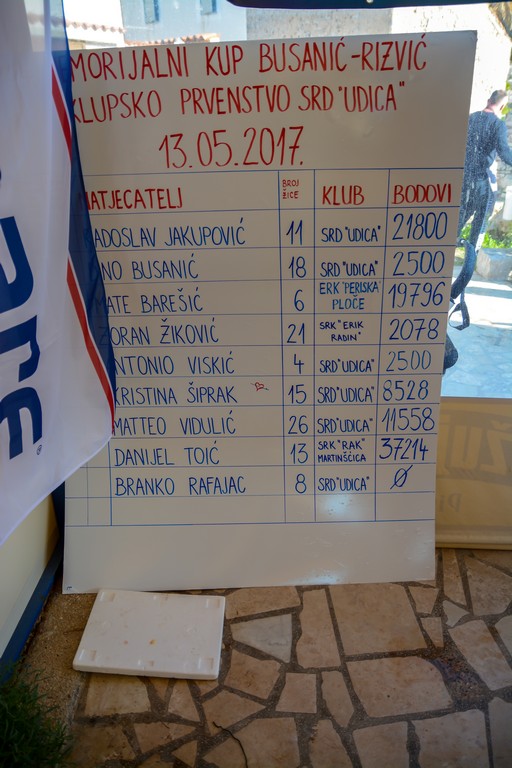 MORIJALNI KUP BUSANIĆ-RIZVIĆ
KLUPSKO PRVENSTVO SRD "UDICA"
13.05.2017.
ATJECATELJ BROJ ŽICE KLUB BODOVI
ADOSLAV JAKUPOVIĆ 11 SRD "UDICA" 21800
NO BUSANIĆ 18 SRD "UDICA" 2500
ATE BAREŠIĆ 6 ERK "PERISKA" PLOČE 19796
ZORAN ŽIKOVIĆ 21 SRK "ERIK RADIN" 2078
NTONIO VISKIĆ 4 SRD "UDICA" 2500
KRISTINA ŠIPRAK 15 SRD "UDICA" 8528
MATTEO VIDULIĆ 26 SRD "UDICA" 11558
DANIJEL TOIĆ 13 SRK "RAK" MARTINŠĆICA 37214
BRANKO RAFAJAC 8 SRD "UDICA" Ø